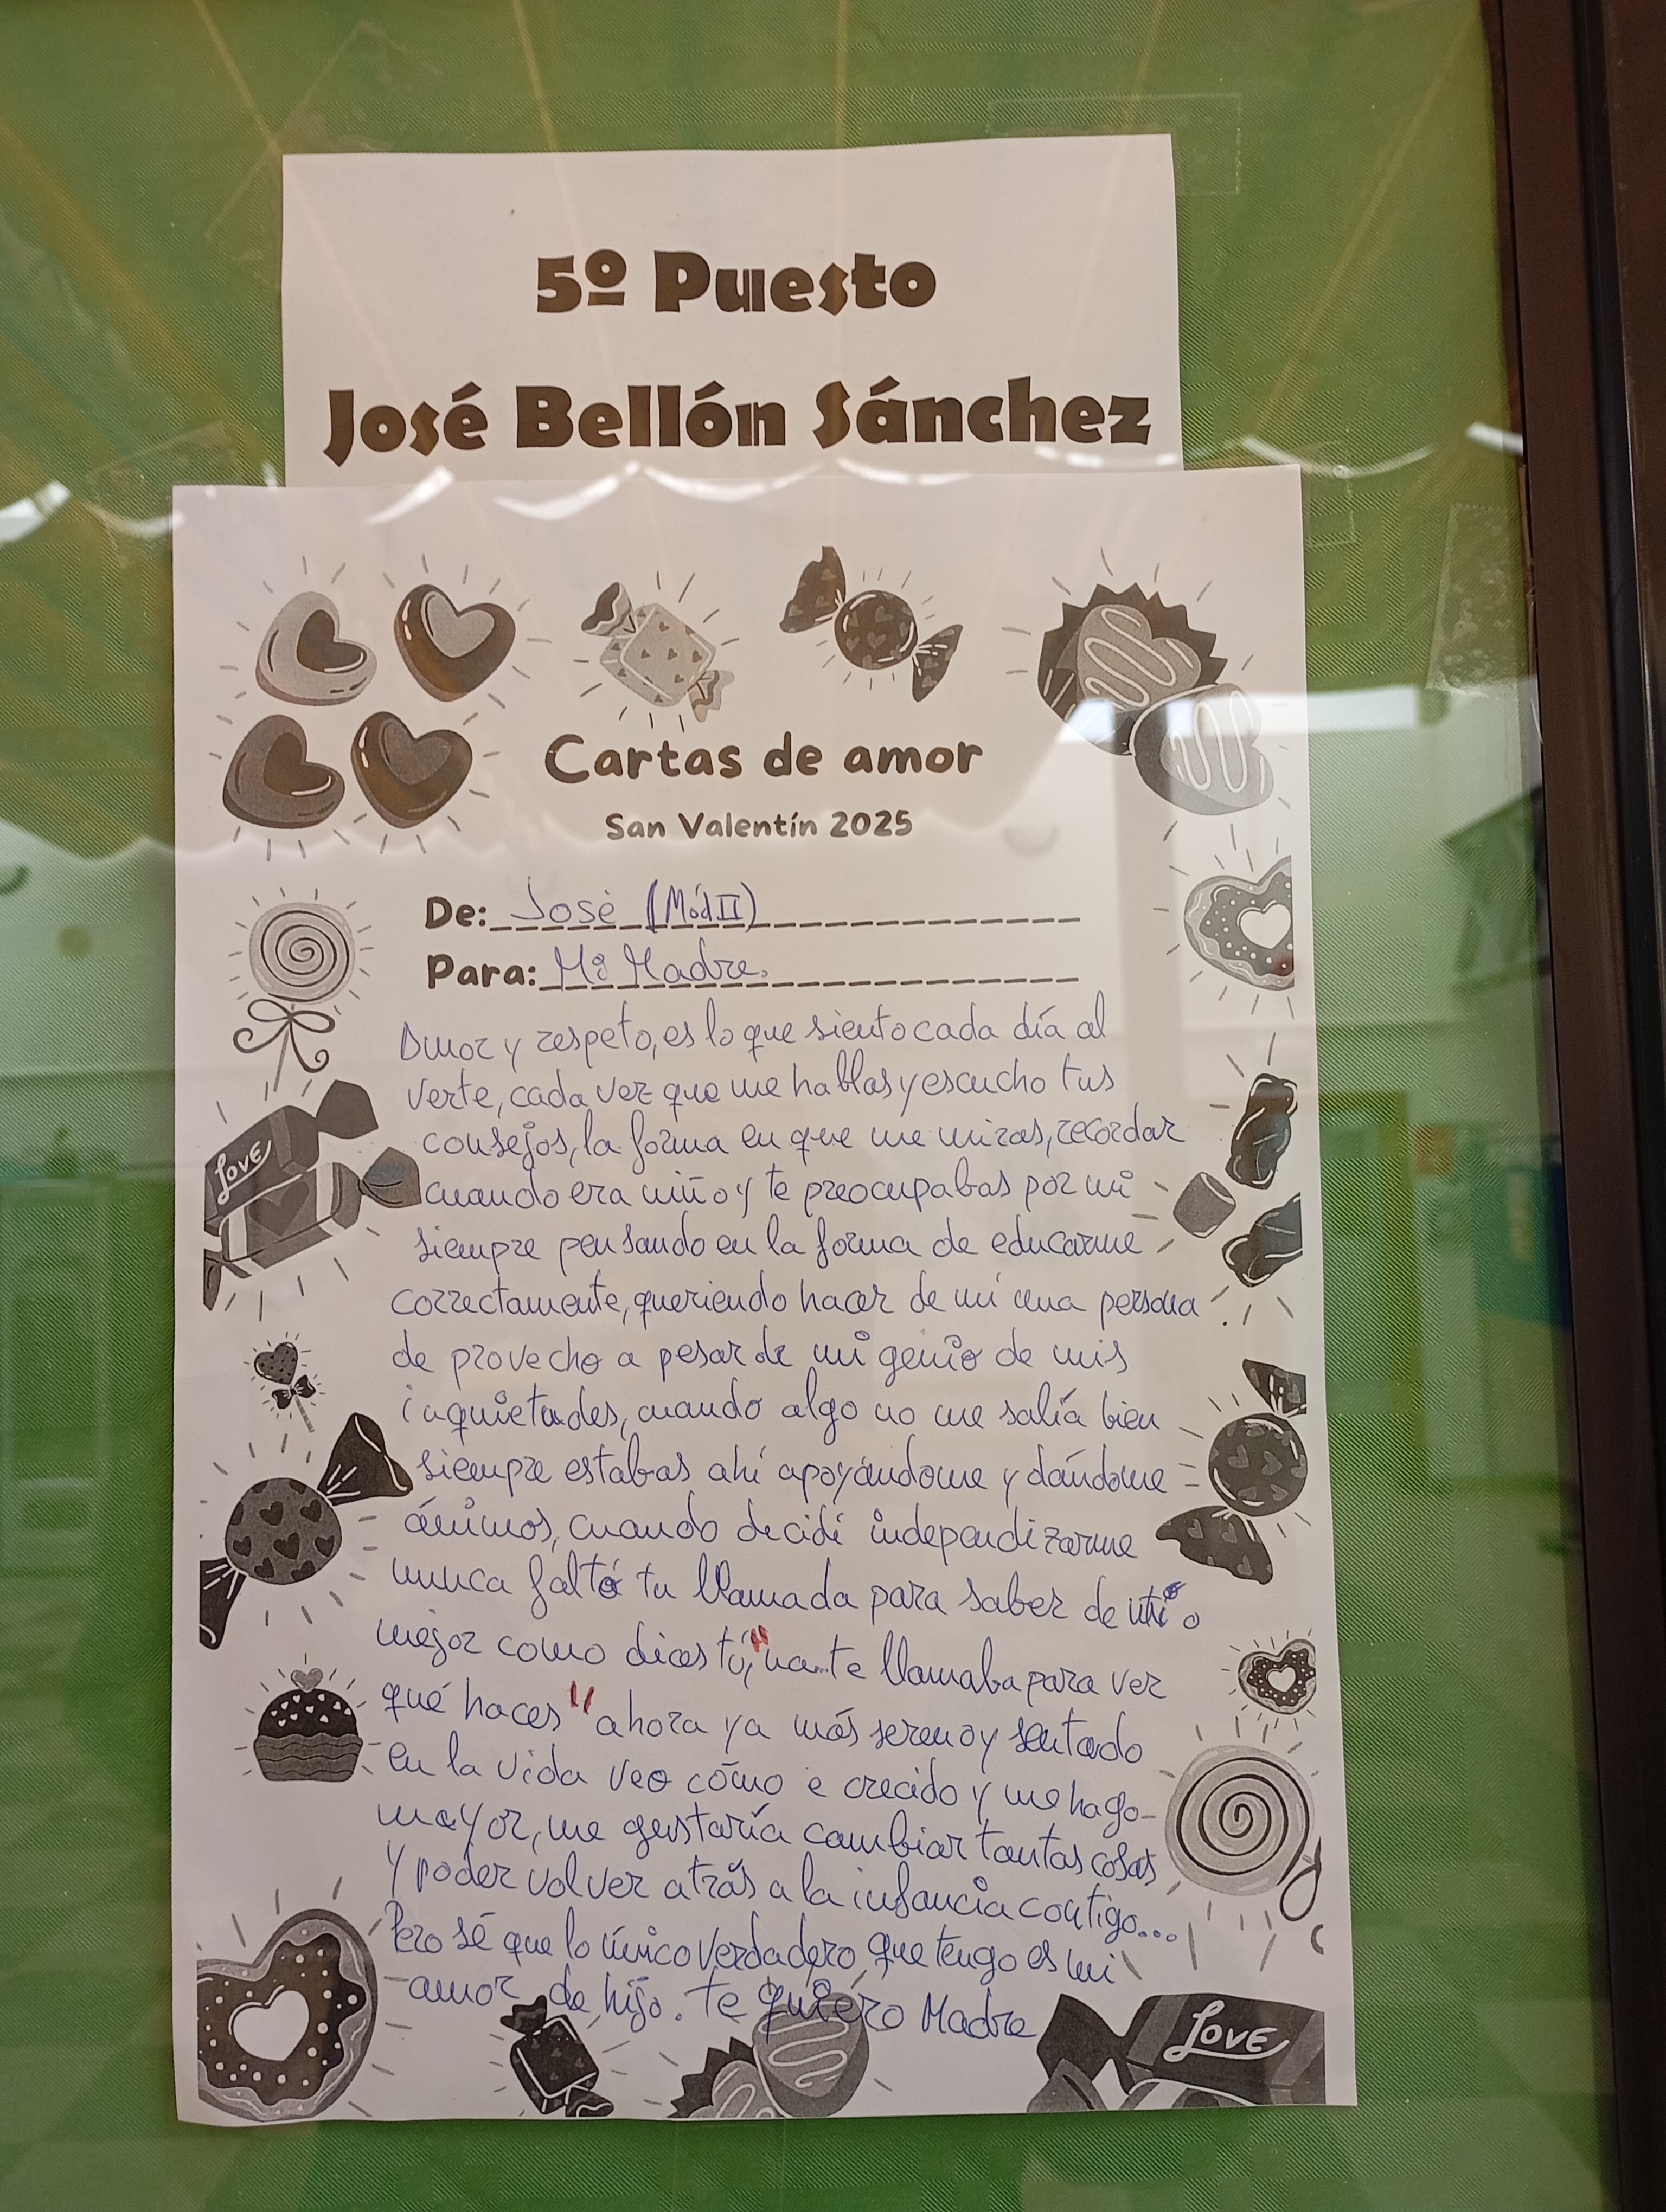 5º Puesto
José Bellón Sánchez
Cartas de amor
San Valentín 2025
De: José (Mód II)
Para: Mi Madre.
Amor y respeto, es lo que siento cada día al
verte, cada vez que me hablas y escucho tus
consejos, la forma en que me miras, recordar
cuando era niño y te preocupabas por mi
siempre pensando en la forma de educarme
correctamente, queriendo hacer de mi una persona
de provecho a pesar de mi genio de mis
inquietudes, cuando algo no me salía bien
siempre estabas ahí apoyándome y dándome
ánimos, cuando decidí independizarme
nunca faltó tu llamada para saber de mi o
mejor como dices tú, "na.. te llamaba para ver
qué haces" ahora ya más sereno y sentado
en la vida veo cómo e crecido y me hago
mayor, me gustaría cambiar tantas cosas
y poder volver atrás a la infancia contigo...
Pero sé que lo único verdadero que tengo es mi
amor de hijo. te quiero Madre
LOVE
LOVE